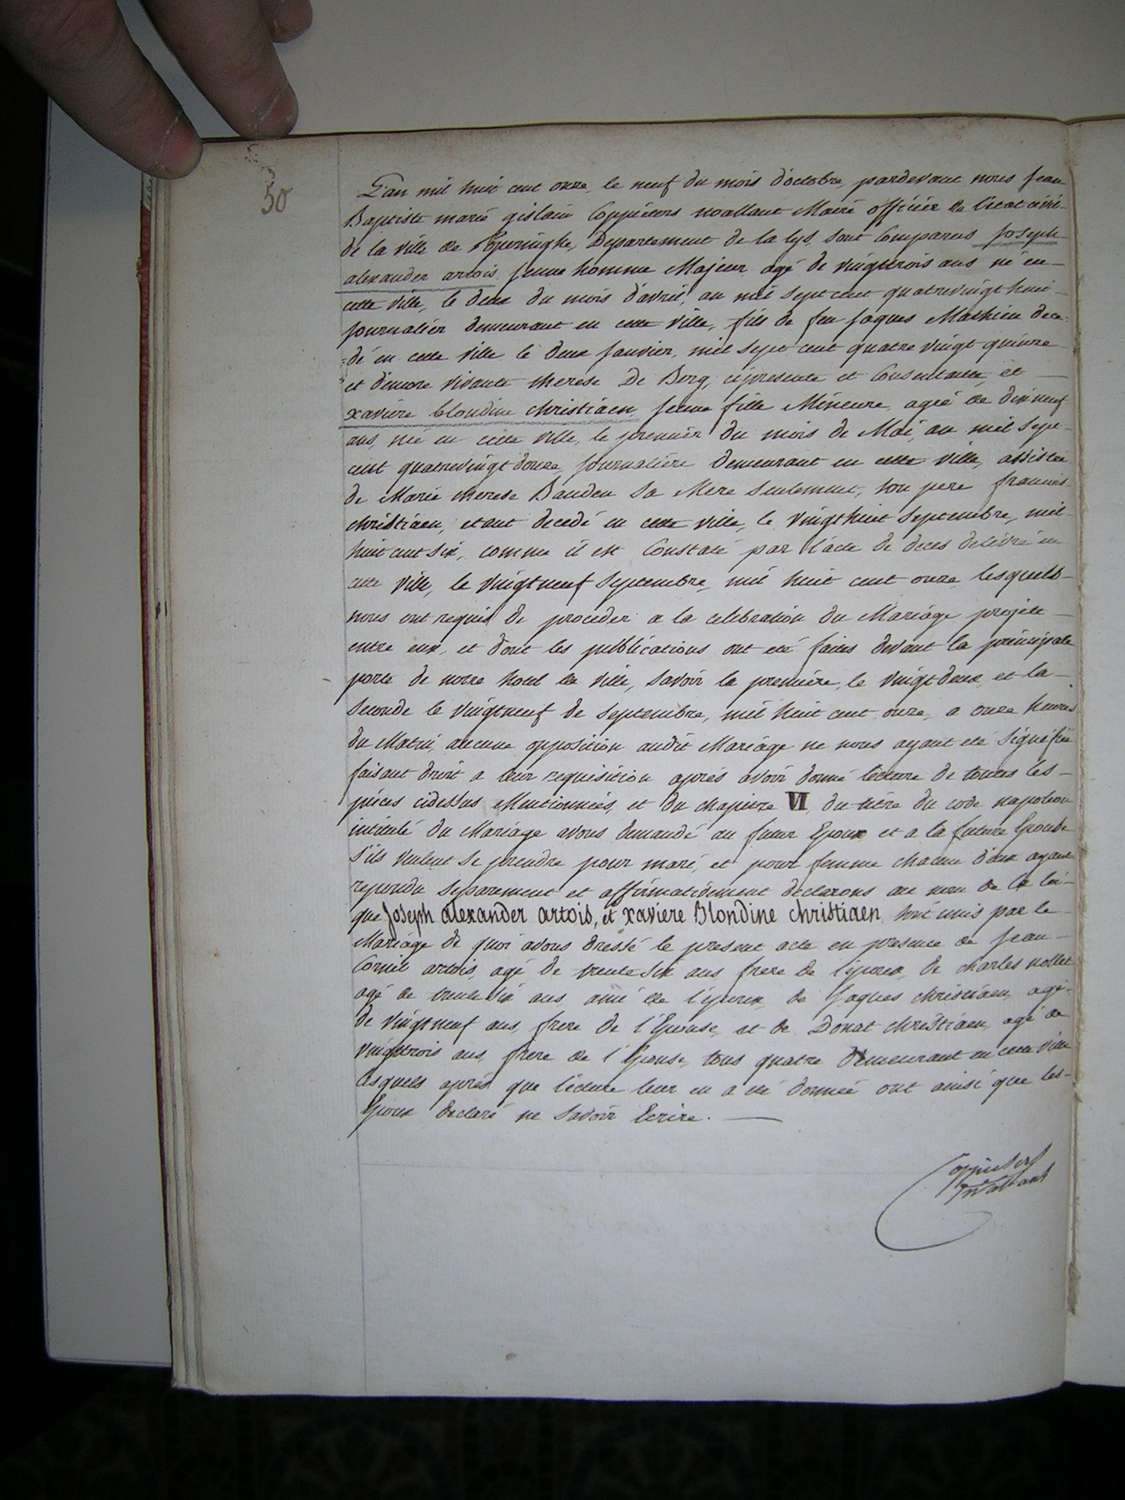 50
L'an mil huit cent onze, le neuf du mois d'octobre, pardevant nous Jean
Baptiste marié gislain Coppieters wallant Maire officier de l'état civil
de la ville de Poperinghe, Departement de la lys, sont Comparus Joseph
alexander artois, jeune homme Majeur agé de vingttrois ans né en
cette ville, le deux du mois d'avril, an mil sept cent quatrevingt huit
journalier demeurant en cette ville, fils de feu Jaques Mathieu dece-
dé en cette ville le deux Janvier, mil sept cent quatre vingt quinze
et d'encore vivante therese De Borg, cipresente et Consentante, et
xaviere blondine christiaen, jeune fille Mineure, ageé de dix neuf
ans, né en cette ville, le premier du mois de Mai, an mil sept
cent quatrevingt douze, journaliere demeurant en cette ville, assistée
de Marie therese Bauden sa Mere seulement, son pere francois
christiaen, etant decedé en cette ville, le vingt huit septembre, mil
huit cent six, comme il est Constaté par l'acte de deces delivré en
cette ville, le vingtneuf septembre, mil huit cent onze, lesquels
nous ont requis de proceder a la celebration du Mariage projetté
entre eux, et dont les publications ont eté faites devant la principale
porte de notre hotel de ville, savoir la premiere, le vingt deux et la
seconde le vingtneuf de septembre, mil huit cent onze, a onze heures
du Matin, aucune opposition audit Mariage ne nous ayant eté signifiée
faisant droit a leur requisition aprés avoir donné lecture de toutes les
piéces cidessus Mentionneés, et du chapitre VI du titre du code napoleon
intitulé du Mariage avons demandé au futur Epoux et a la future Epouse
s'ils veulent se prendre pour mari, et pour femme chacun d'eux ayant
repondu separement et affirmativement declarons au nom de la loi
que Joseph alexander artois, et xaviere Blondine christiaen, sont unis par le
Mariage de quoi avons dressé le present acte en presence de Jean
Cornil artois, agé de trente six ans frere de l'epoux, de charles nollet
agé de trente six ans, ami de l'epoux, de Jaques christiaen, agé
de vingtneuf ans, frere de l'Epouse, et de Donat christiaen, agé de
vingttrois ans, frere de l'Epouse, tous quatre demeurant en cette ville
lesquels aprés que lecture leur en a eté donneé ont ainsi que les
Epoux declaré ne savoir Ecrire.
Coppieters
Wallant